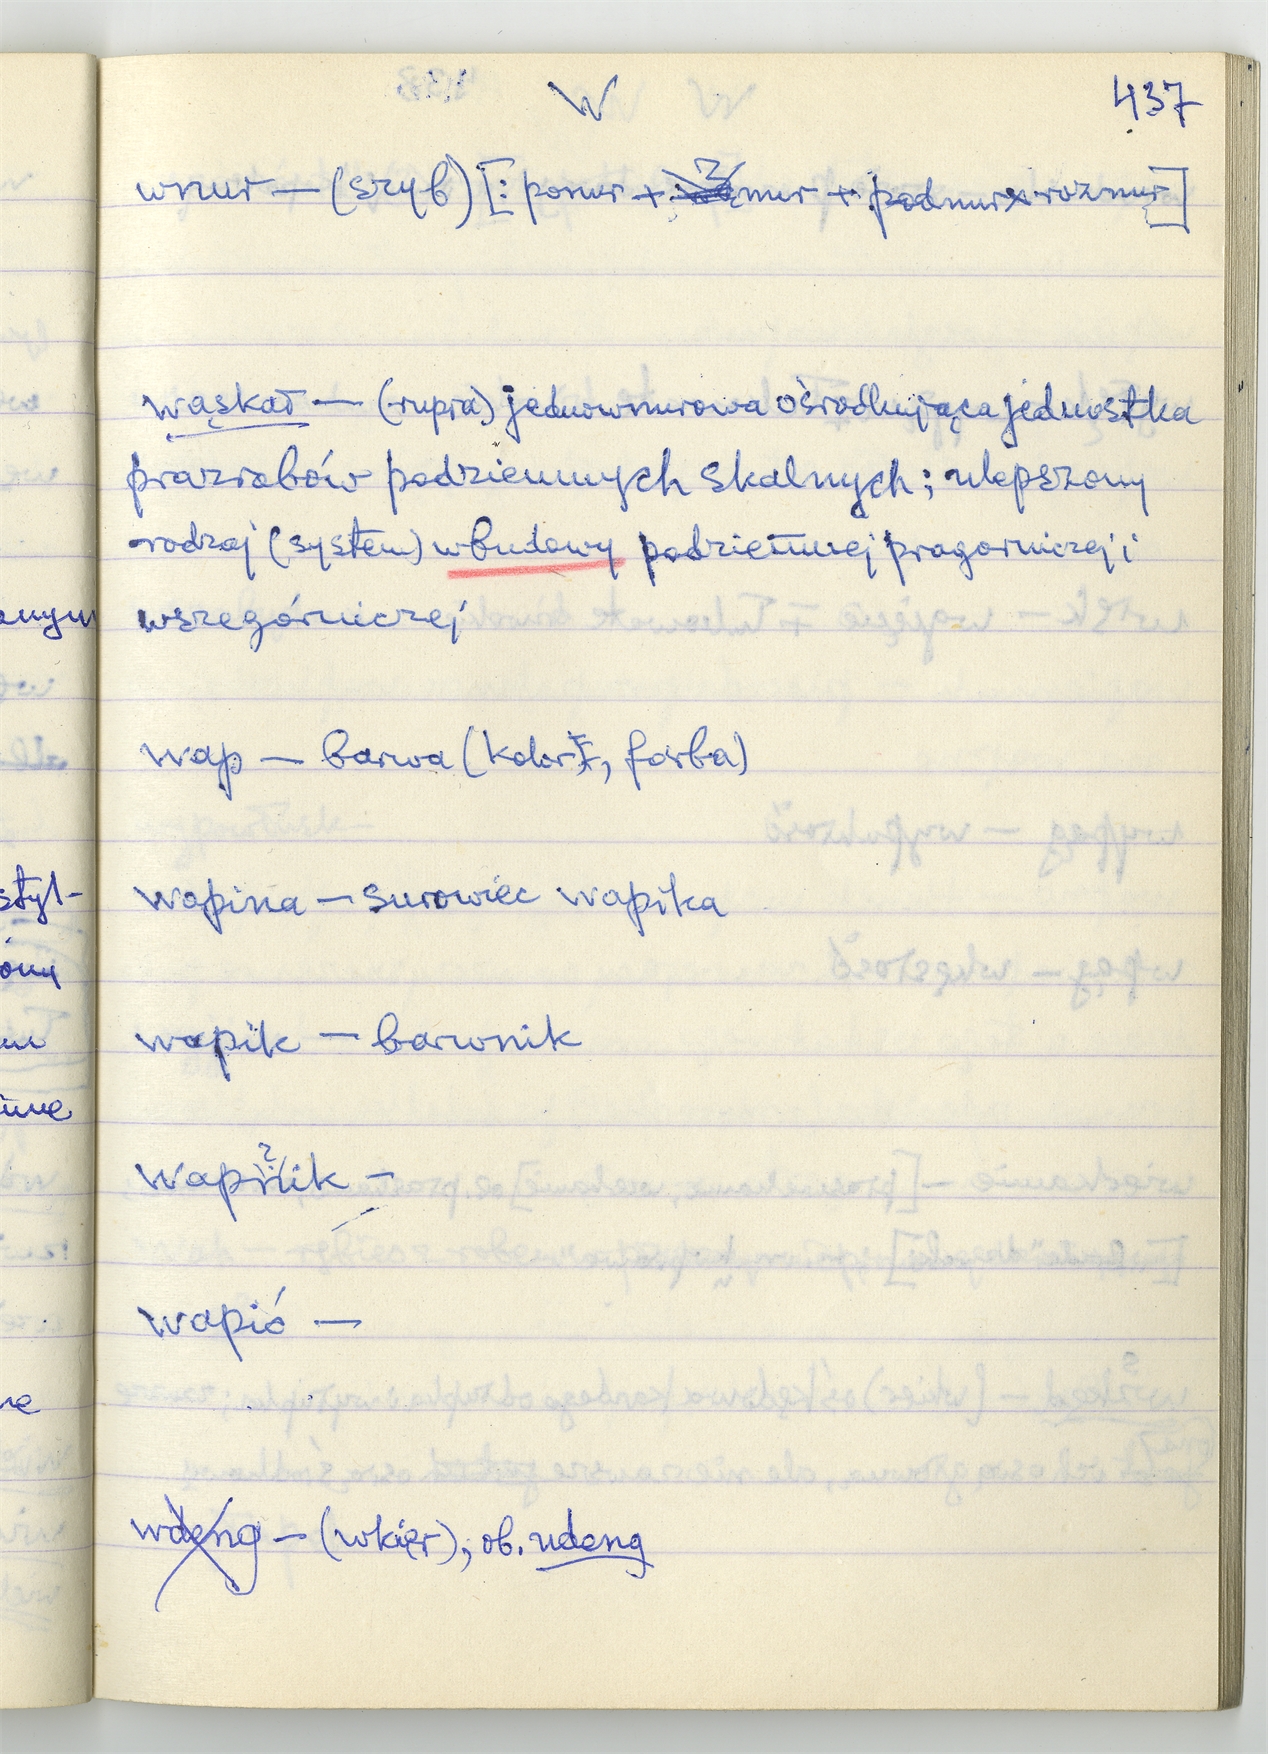 W 437
wnur — (szyb) [: ponur + znur + podnur + roznur]
wąskał — (rupra) jednownurowa ośrodkująca jednostka
prazrobów podziemnych skalnych; ulepszony
rodzaj (system) wbudowy podziemnej pragorniczej i
wszegórniczej
wap — barwa (kolor, farba)
wapina — surowiec wapika
wapik — barwnik
wapnik —
wapió —
wdeng — (wkięr); ob. udeng
anym
styl-
óny
ne